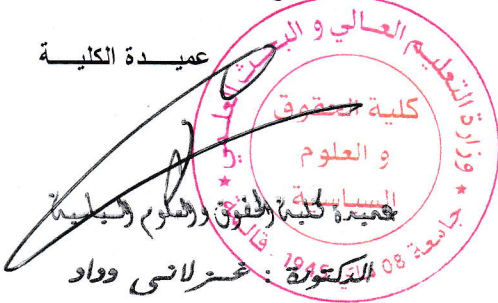 عميدة الكلية
وزارة التعليم العالي و البحث العلمي
جامعة 08 ماي 1945 قالمة
كلية الحقوق
و العلوم
السياسية
عميدة كلية الحقوق والعلوم السياسية
الدكتورة : غزلاني وداد